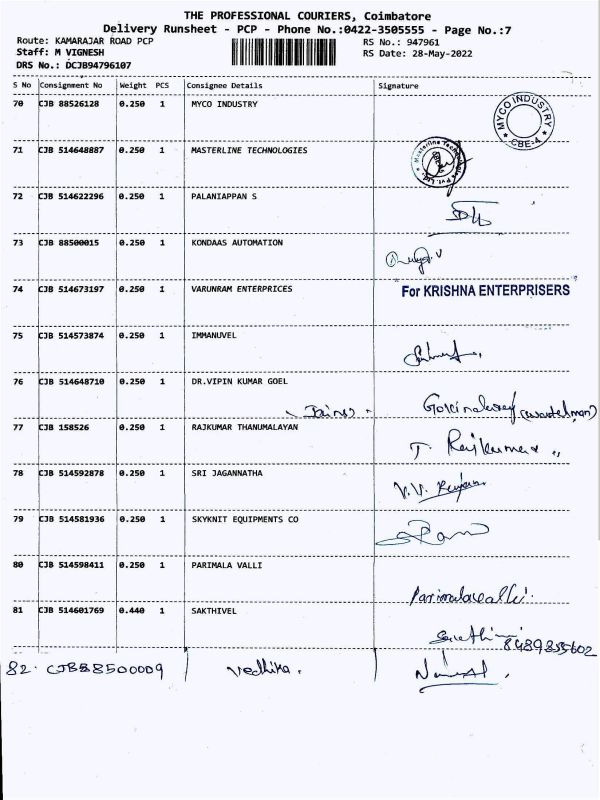 THE PROFESSIONAL COURIERS, Coimbatore
Delivery Runsheet - PCP - Phone No.:0422-3505555 - Page No.:7
Route: KAMARAJAR ROAD PCP RS No.: 947961
Staff: M VIGNESH RS Date: 28-May-2022
DRS No.: DCJB94796107
S No Consignment No Weight PCS Consignee Details Signature
70 CJB 88526128 0.250 1 MYCO INDUSTRY
MYCO INDUSTRY CBE-4
71 CJB 514648887 0.250 1 MASTERLINE TECHNOLOGIES
Masterline Technologies Pvt. Ltd.
72 CJB 514622296 0.250 1 PALANIAPPAN S
73 CJB 88500015 0.250 1 KONDAAS AUTOMATION
74 CJB 514673197 0.250 1 VARUNRAM ENTERPRICES For KRISHNA ENTERPRISERS
75 CJB 514573874 0.250 1 IMMANUVEL
76 CJB 514648710 0.250 1 DR.VIPIN KUMAR GOEL
77 CJB 158526 0.250 1 RAJKUMAR THANUMALAYAN
T. Rajkumar
78 CJB 514592878 0.250 1 SRI JAGANNATHA
V.V.
79 CJB 514581936 0.250 1 SKYKNIT EQUIPMENTS CO
80 CJB 514598411 0.250 1 PARIMALA VALLI
Parimalavalli.
81 CJB 514601769 0.440 1 SAKTHIVEL
8489855602
82. CJB88500009 Vedhika.